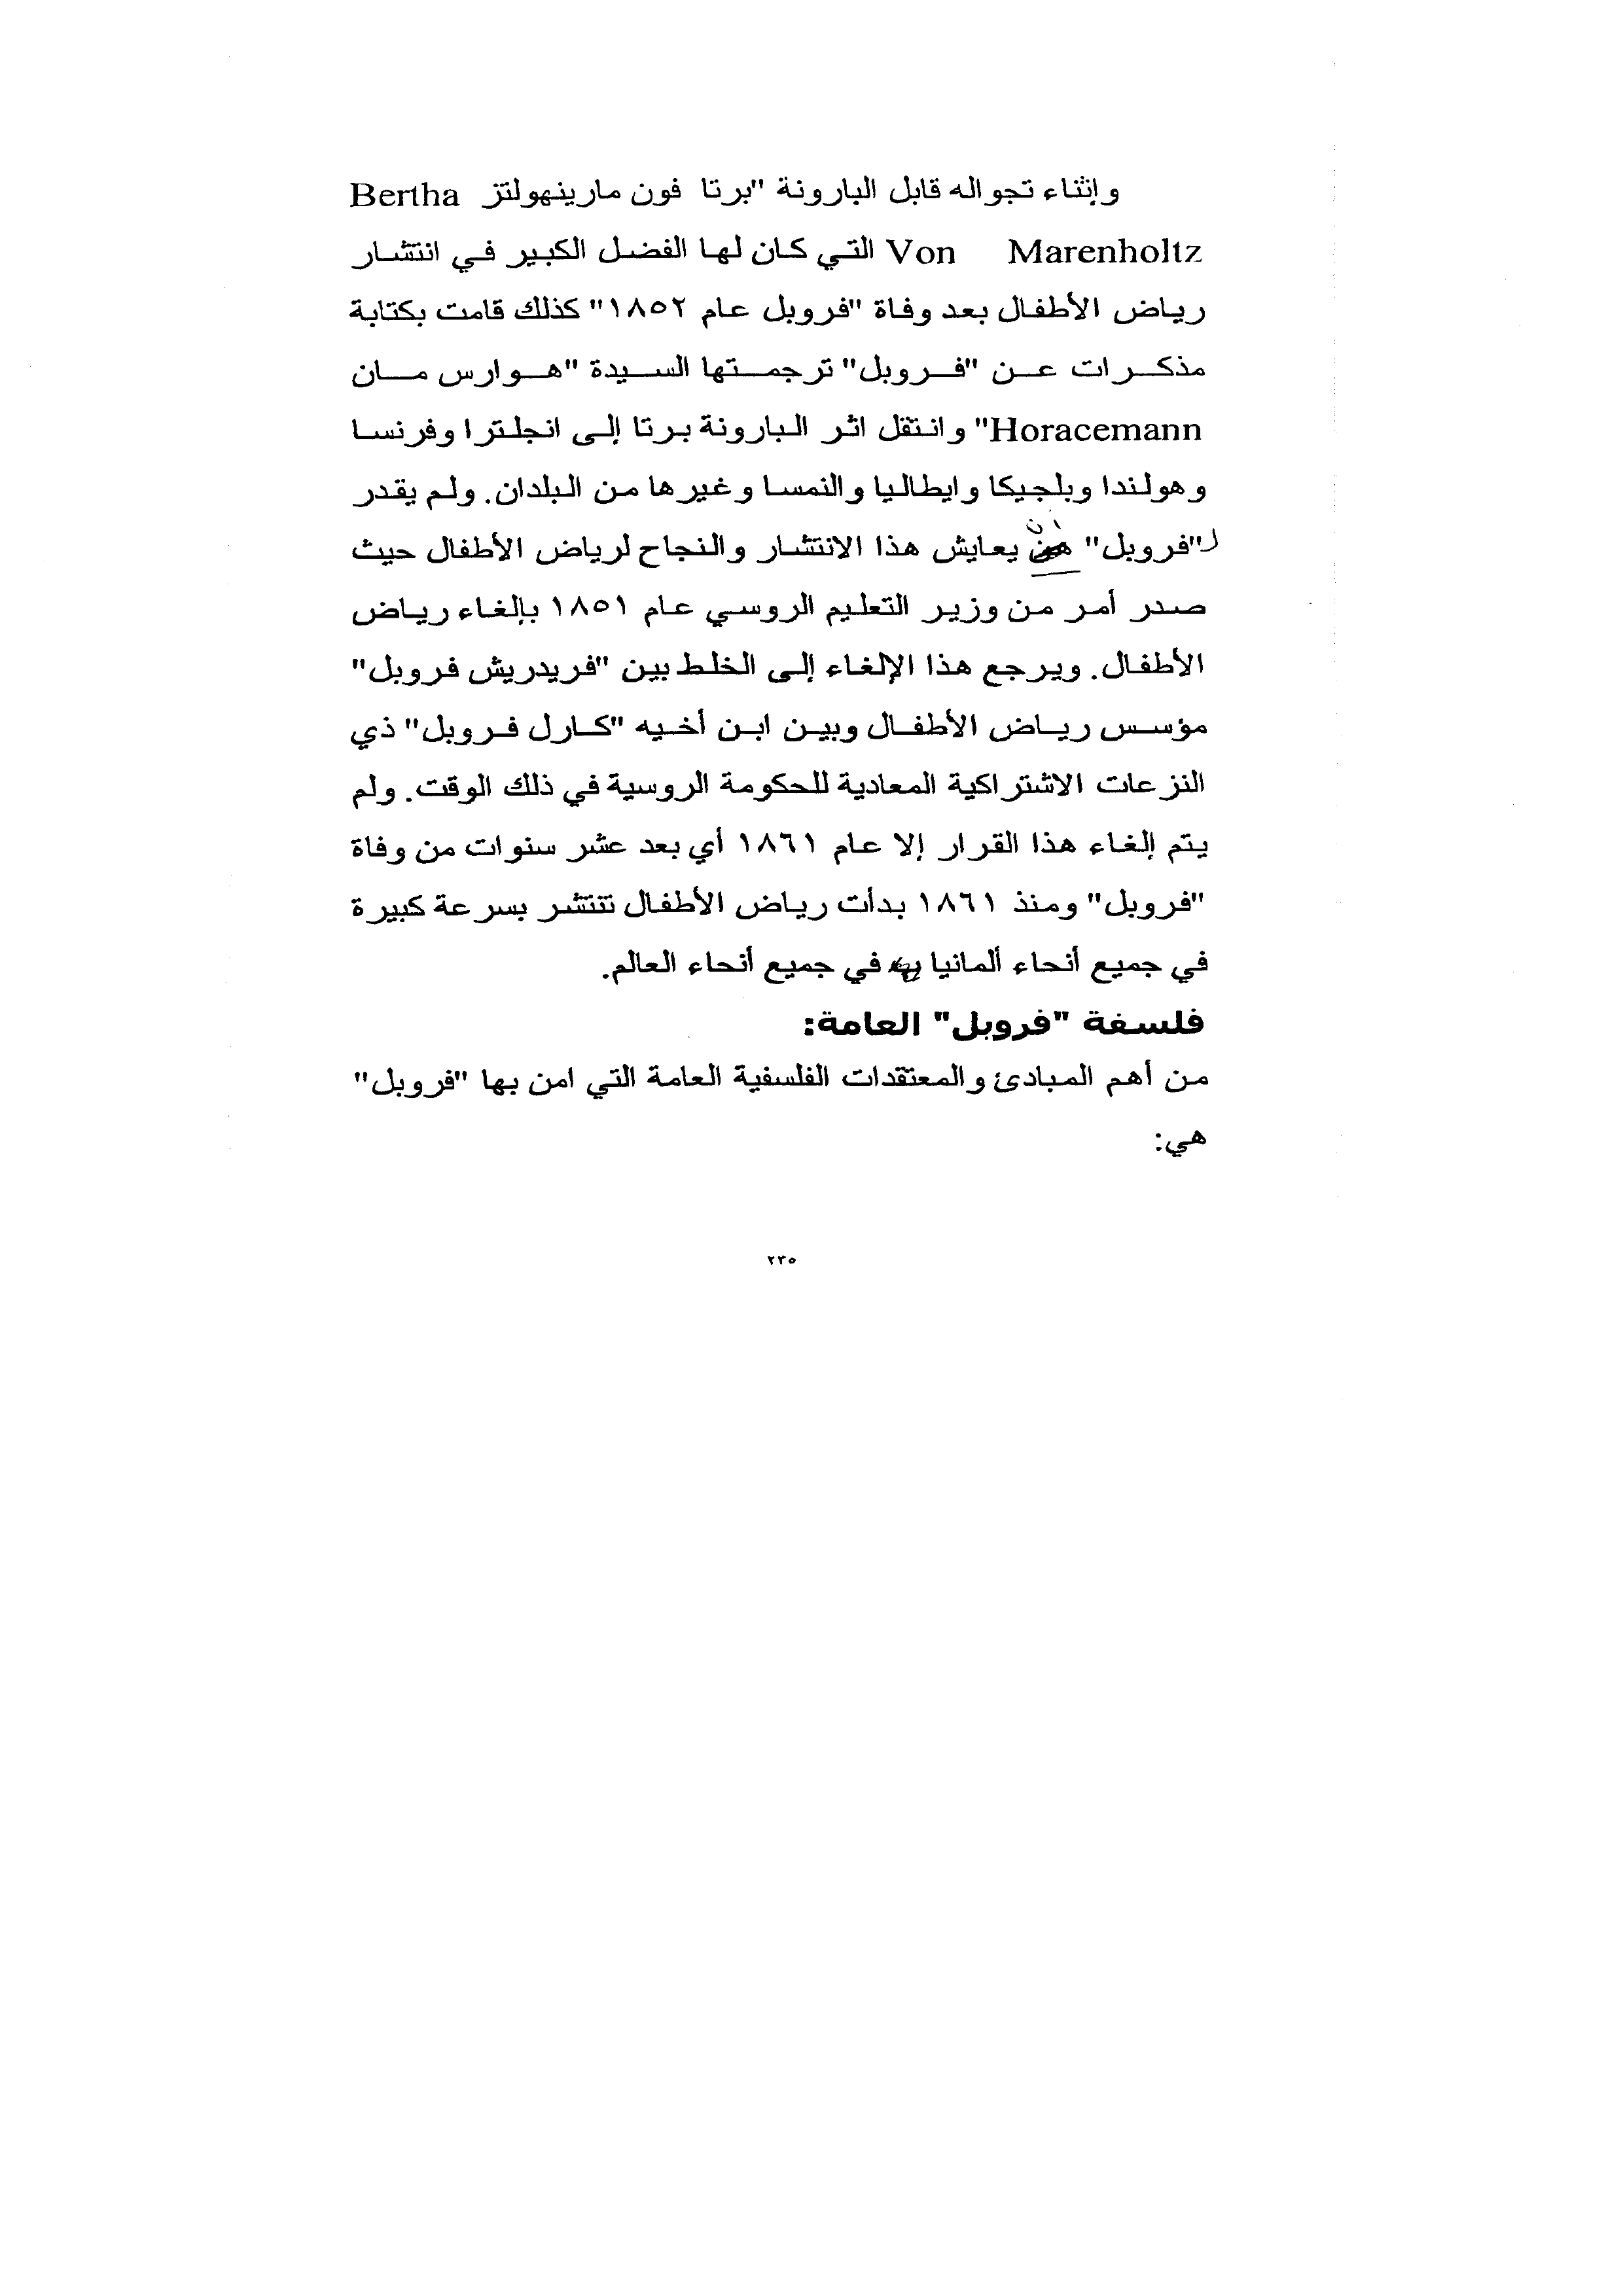 وإثناء تجواله قابل البارونة "برتا فون مارينهولتز Bertha
Von Marenholtz التي كان لها الفضل الكبير في انتشار
رياض الأطفال بعد وفاة "فروبل عام ١٨٥٢" كذلك قامت بكتابة
مذكرات عن "فروبل" ترجمتها السيدة "هوارس مان
Horacemann" وانتقل اثر البارونة برتا إلى انجلترا وفرنسا
وهولندا وبلجيكا وايطاليا والنمسا وغيرها من البلدان. ولم يقدر
لـ"فروبل" أن يعايش هذا الانتشار والنجاح لرياض الأطفال حيث
صدر أمر من وزير التعليم الروسي عام ١٨٥١ بإلغاء رياض
الأطفال. ويرجع هذا الإلغاء إلى الخلط بين "فريدريش فروبل"
مؤسس رياض الأطفال وبين ابن أخيه "كارل فروبل" ذي
النزعات الاشتراكية المعادية للحكومة الروسية في ذلك الوقت. ولم
يتم إلغاء هذا القرار إلا عام ١٨٦١ أي بعد عشر سنوات من وفاة
"فروبل" ومنذ ١٨٦١ بدأت رياض الأطفال تنتشر بسرعة كبيرة
في جميع أنحاء ألمانيا في جميع أنحاء العالم.
فلسفة "فروبل" العامة:
من أهم المبادئ والمعتقدات الفلسفية العامة التي امن بها "فروبل"
هي:
٢٣٥